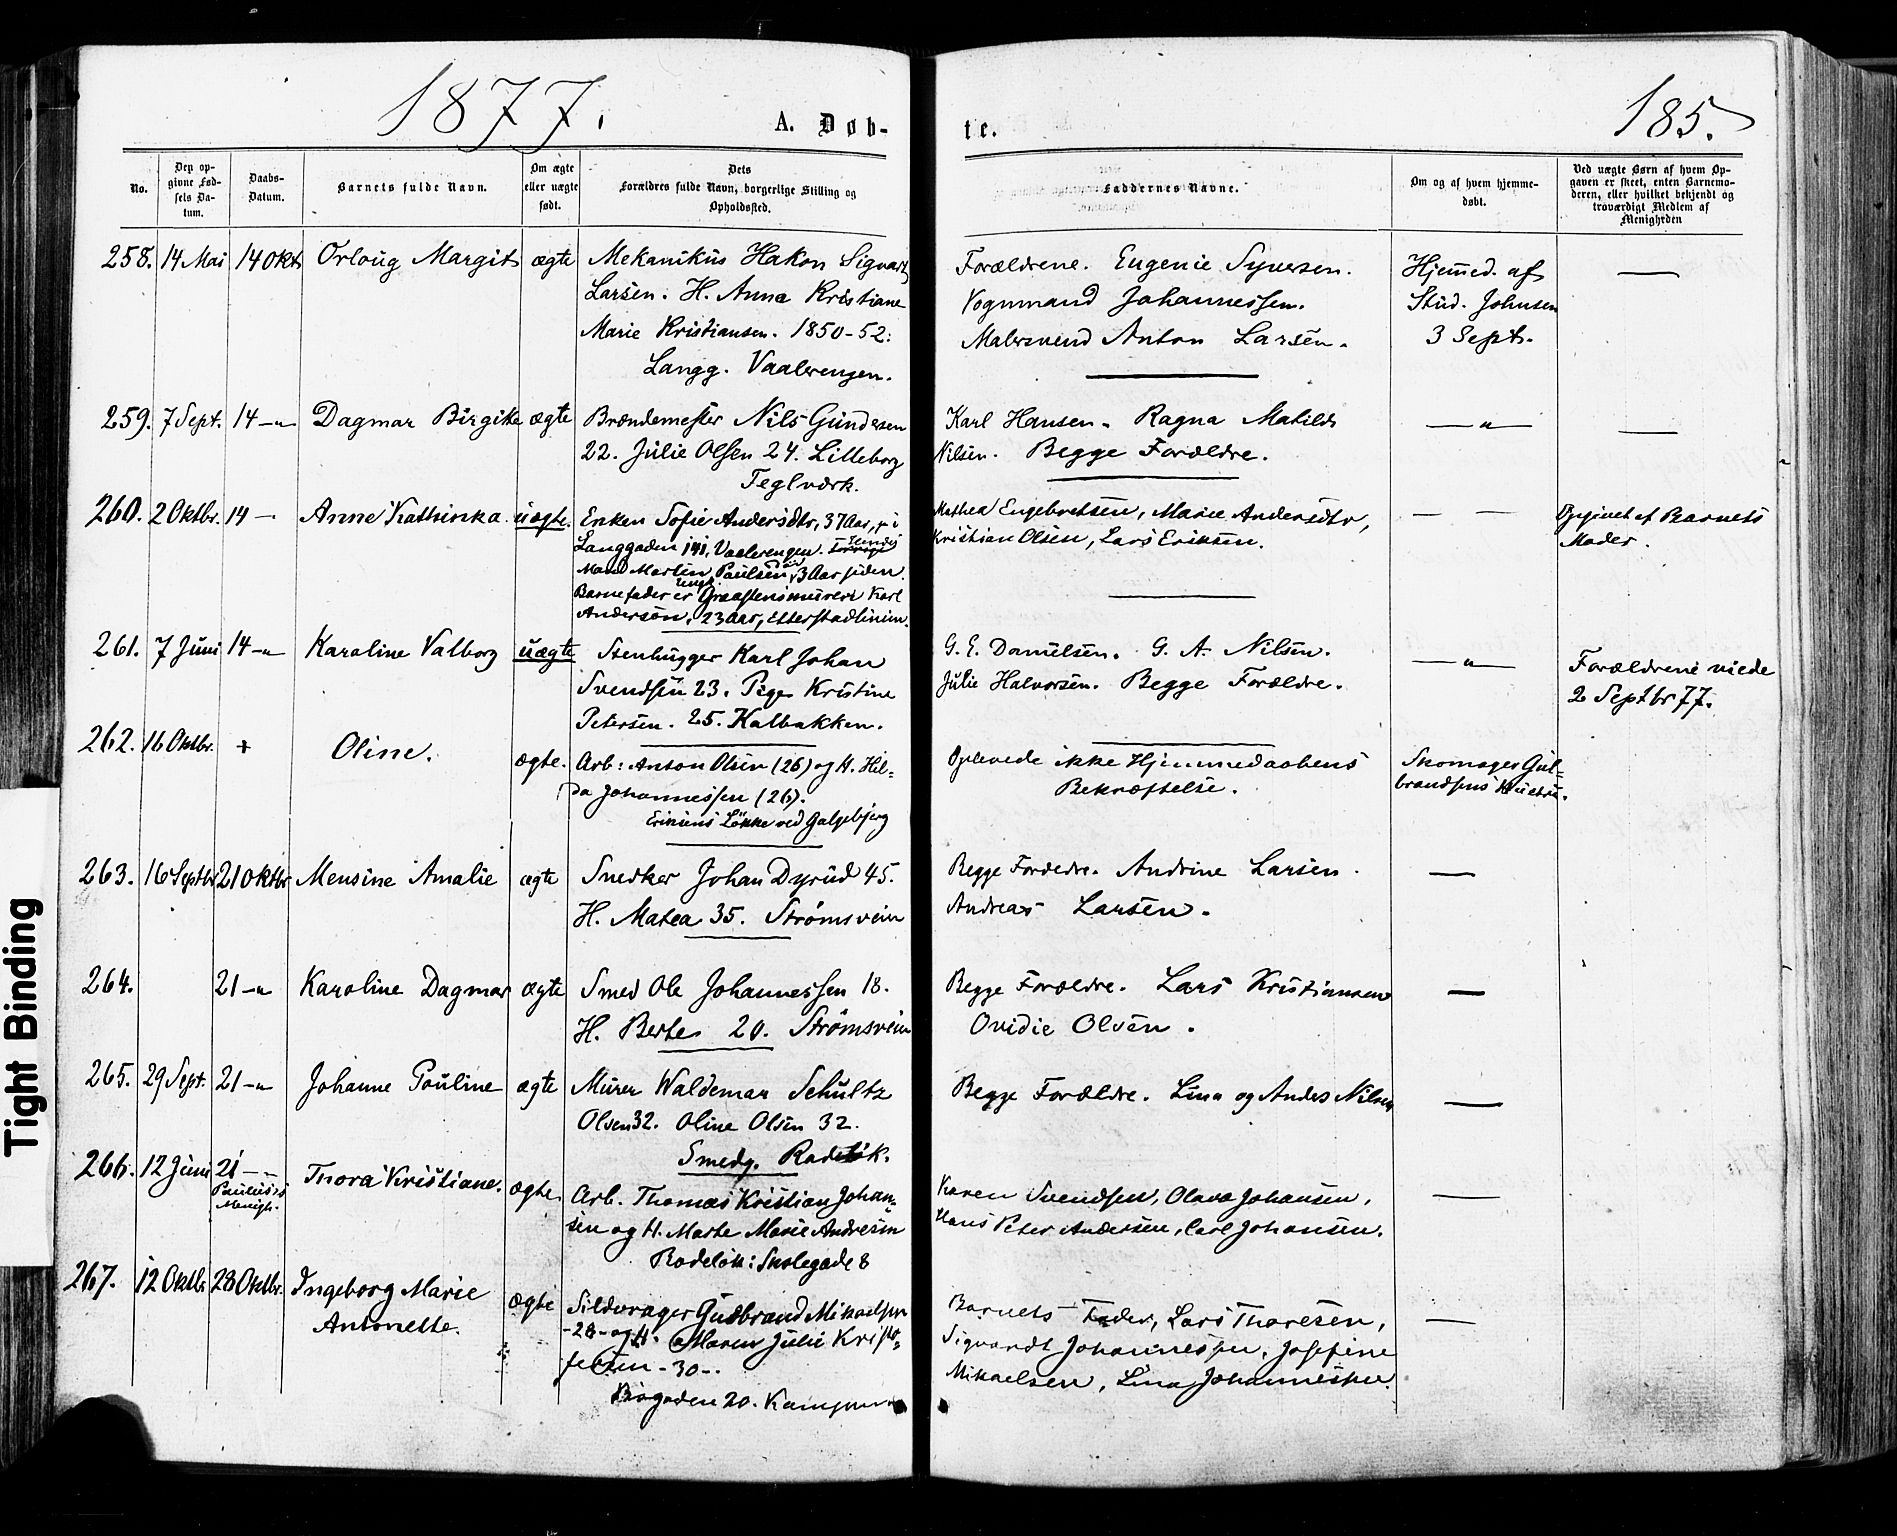 1877.
A. Døb-
te.
185.
No.
Den op-
givne Fød-
sels Da-
tum.
Daabs-
Datum.
Barnets fulde Navn.
Om ægte
eller uægte
født.
Dets
Forældres fulde Navn, borgerlige Stilling og
Opholdssted.
Faddernes Navne.
Om og af hvem hjemme-
døbt.
Ved uægte Børn af hvem Op-
gaven er skeet, enten Barnemo-
deren, eller hvilket bekjendt og
troværdigt Medlem af
Menigheden
258. 14 Mai 14 Okt Orloug Margit ægte
Mekanikus Hakon Sigvart
Larsen. H. Anna Kristiane
Marie Kristiansen. 1850-52:
Langg. Vaalerengen.
Forældrene. Eugenie Syversen.
Vognmand Johannessen.
Malersvend Anton Larsen.
Hjemmed. af
Stud. Johnsen
3 Sept.
—
259. 7 Sept. 14 -"- Dagmar Birgitte ægte
Brændemester Nils Gundersen
22. Julie Olsen 24. Lilleborg
Teglværk.
Karl Hansen. Ragna Matilde
Nilsen. Begge Forældre.
— " —
—
260. 2 Oktbr. 14 — Anne Kathinka. uægte.
Enken Sofie Andersdtr, 37 Aar, i
Langgaden 141, Vaalerengen. Hendes
Mand Martin Paulsen, 3 Aar siden.
Barnefader er Ungk. Graastensmurer Karl
Anderson, 23 Aar, Etterstadlinien.
Mathea Engebretsen, Marie Andersdtr,
Kristian Olsen, Lars Eriksen.
— —
Opgivet af Barnets
Moder.
261. 7 Juni 14 -"- Karoline Valborg uægte
Stenhugger Karl Johan
Svendsen 23. Pige Kristine
Petersen. 25. Kalbakken.
G. E. Danielsen. G. A. Nilsen.
Julie Halvorsen. Begge Forældre.
— " —
Forældrene viede
2 Septbr 77.
262. 16 Oktbr. + Oline. ægte.
Arb: Anton Olsen (26) og H. Hil-
da Johannessen (26).
Eriksens Løkke ved Galgebjerg
Oplevede ikke Hjemmedaabens
Bekræftelse.
Skomager Gul-
brandsens Hustru.
263. 16 Septbr 21 Oktbr Mensine Amalie ægte
Snedker Johan Dyrud 45.
H. Matea 35. Strømsveien
Begge Forældre. Andrine Larsen.
Andreas Larsen.
—
264. 21 -"- Karoline Dagmar ægte
Smed Ole Johannessen 18.
H. Berte 20. Strømsveien
Begge Forældre. Lars Kristiansen
Ovidie Olsen.
—
265. 29 Sept. 21 -"- Johanne Pouline ægte
Murer Waldemar Schultz
Olsen 32. Oline Olsen 32.
Smedg. Rodeløk.
Begge Forældre. Lina og Anders Nilsen
—
266. 12 Juni 21 — —
Paulus's
Menigh.
Thora Kristiane. ægte.
Arb. Thomas Kristian Johan-
sen og H. Marte Marie Andresen
Rodeløk: Skolegade 8
Karen Svendsen, Olava Johansen,
Hans Peter Andersen, Carl Johansen.
—
267. 12 Oktbr 28 Oktbr. Ingeborg Marie
Antonette.
ægte
Sildvrager Gudbrand Mikaelsen
-28- og H. Maren Julie Kristo-
fersen -30-.
Bogaden 20. Kampen
Barnets Fader, Lars Thoresen,
Sigvardt Johannessen, Josefine
Mikaelsen, Lina Johannessen.
—
Tight Binding